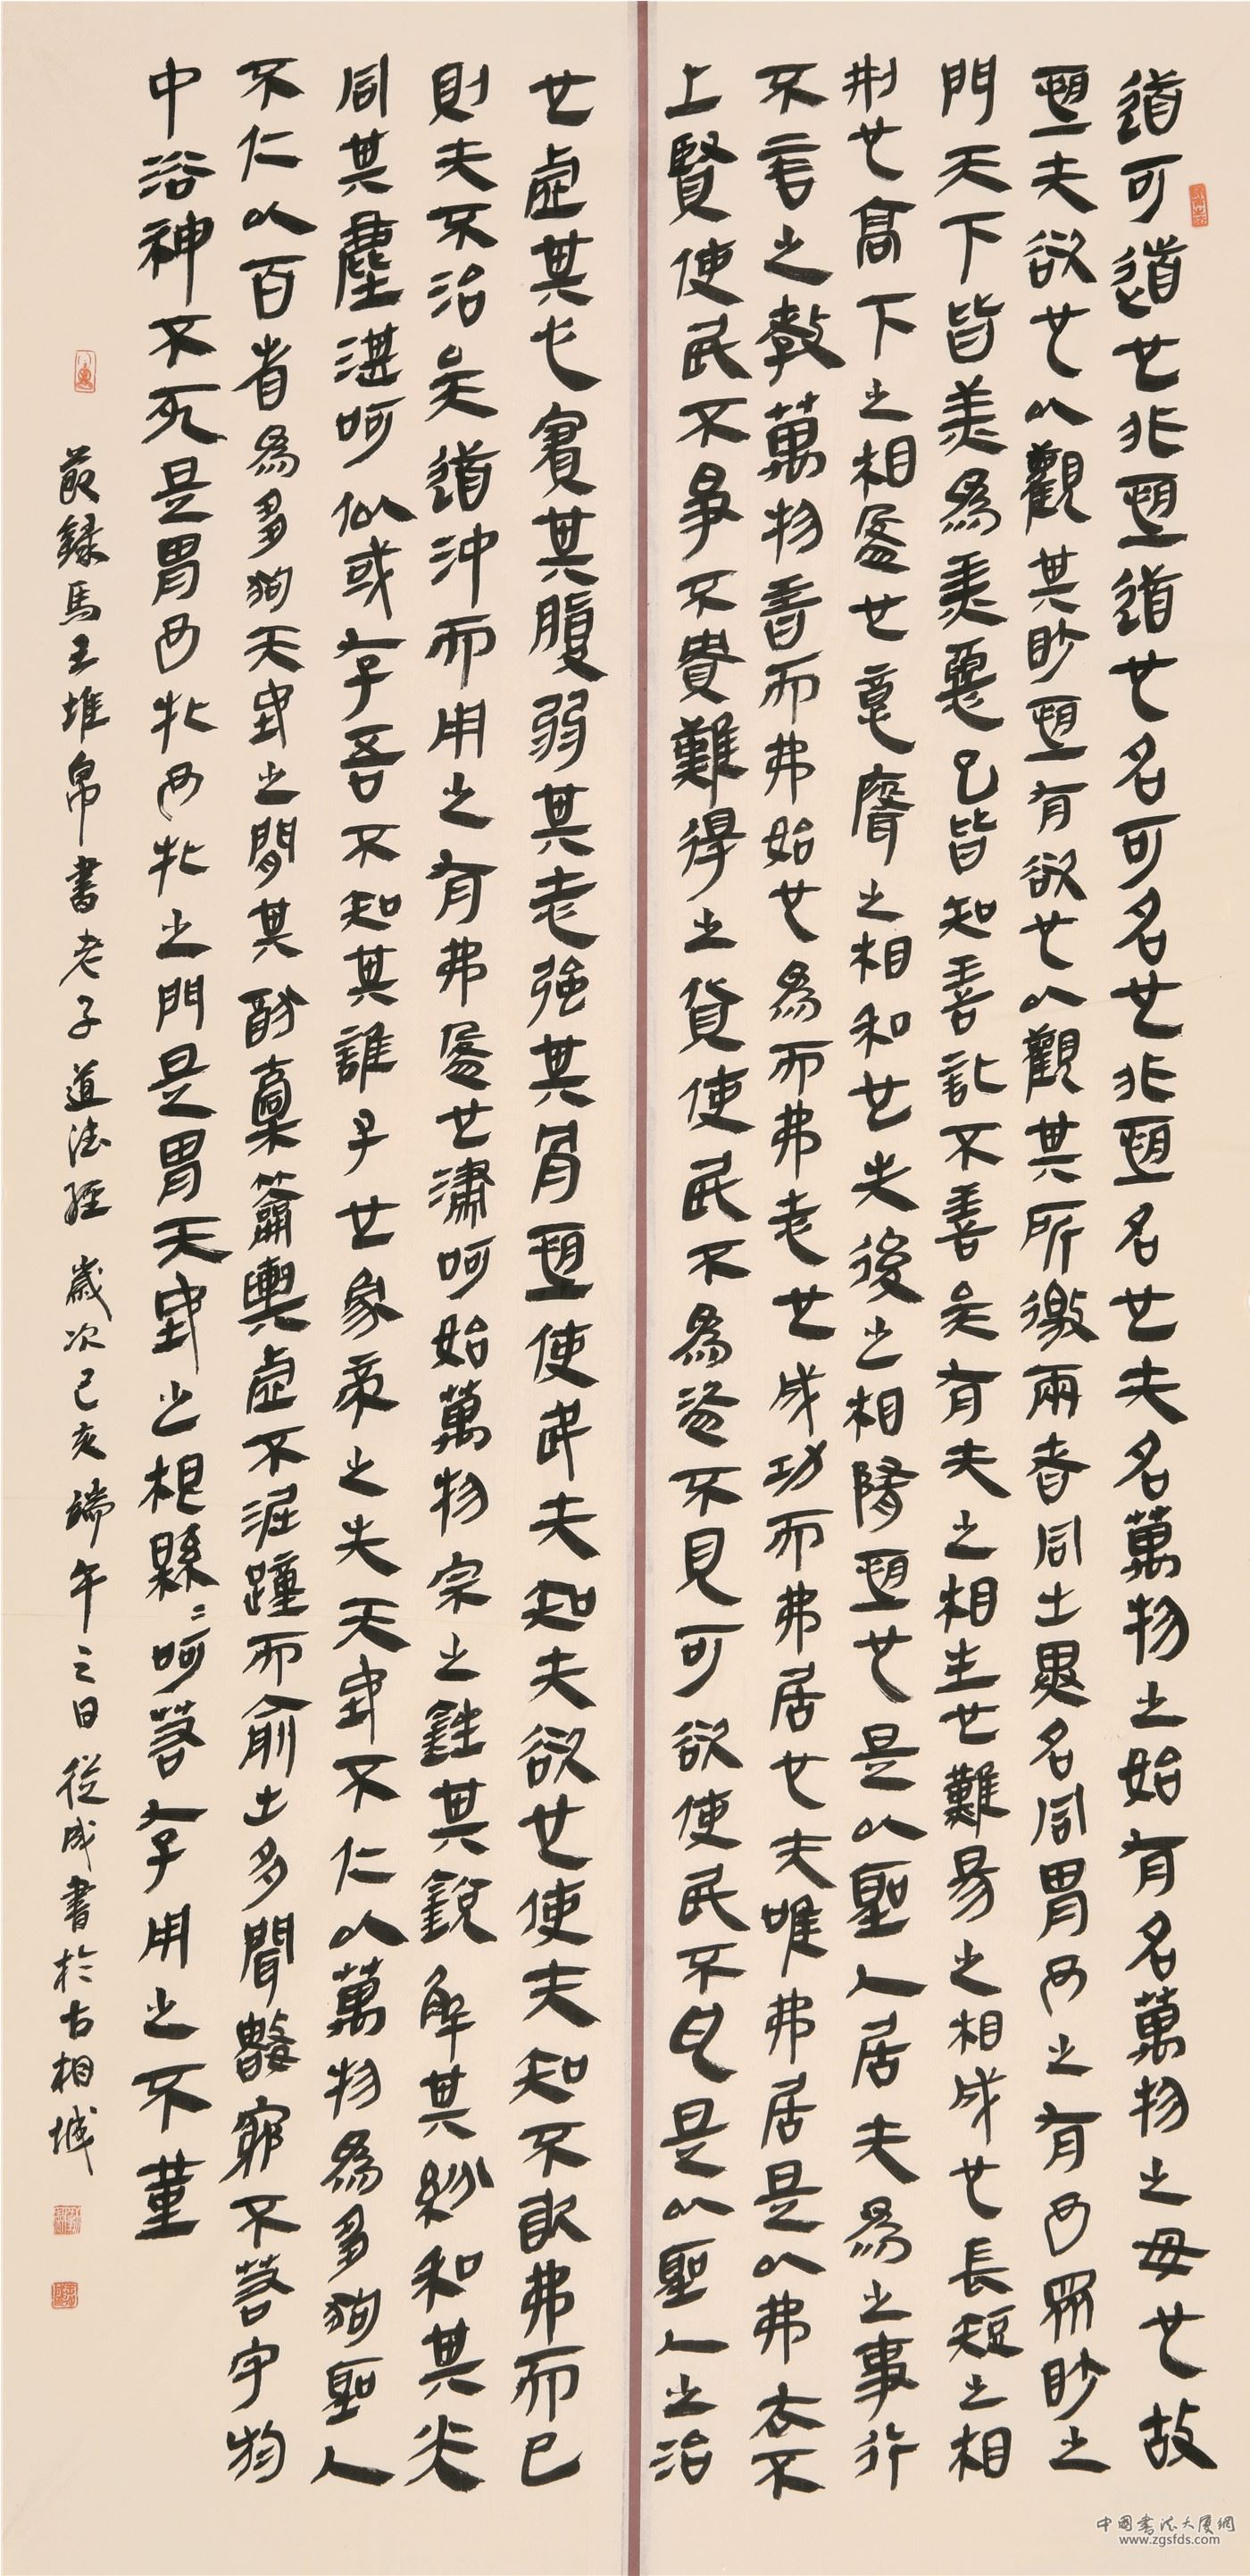 道可道也非恒道也名可名也非恒名也无名萬物之始有名萬物之母也故
恒无欲也以觀其眇恒有欲也以觀其所徼兩者同出異名同胃玄之有玄眾眇之
門天下皆美為美惡已皆知善訿不善矣有无之相生也難易之相成也長短之相
刑也高下之相盈也意聲之相和也先後之相隋恒也是以聖人居无為之事行
不言之教萬物昔而弗始也為而弗志也成功而弗居也夫唯弗居是以弗去不
上賢使民不爭不貴難得之貨使民不為盜不見可欲使民不是以聖人之治
也虛其心實其腹弱其志強其骨恒使民无知无欲也使夫知不敢弗而已
則无不治矣道沖而用之有弗盈也潚呵始萬物宗之銼其銳解其紛和其光
同其塵湛呵似或存吾不知其誰子也象帝之先天地不仁以萬物為芻狗聖人
不仁以百省為芻狗天地之間其猶橐籥輿虛不淈蹱而俞出多聞數窮不若守於
中浴神不死是胃玄牝玄牝之門是胃天地之根緜〻呵若存用之不堇
節錄馬王堆帛書老子道德經 歲次己亥端午之日從成書於古相城
中國書法大廈網
www.zgsfds.com